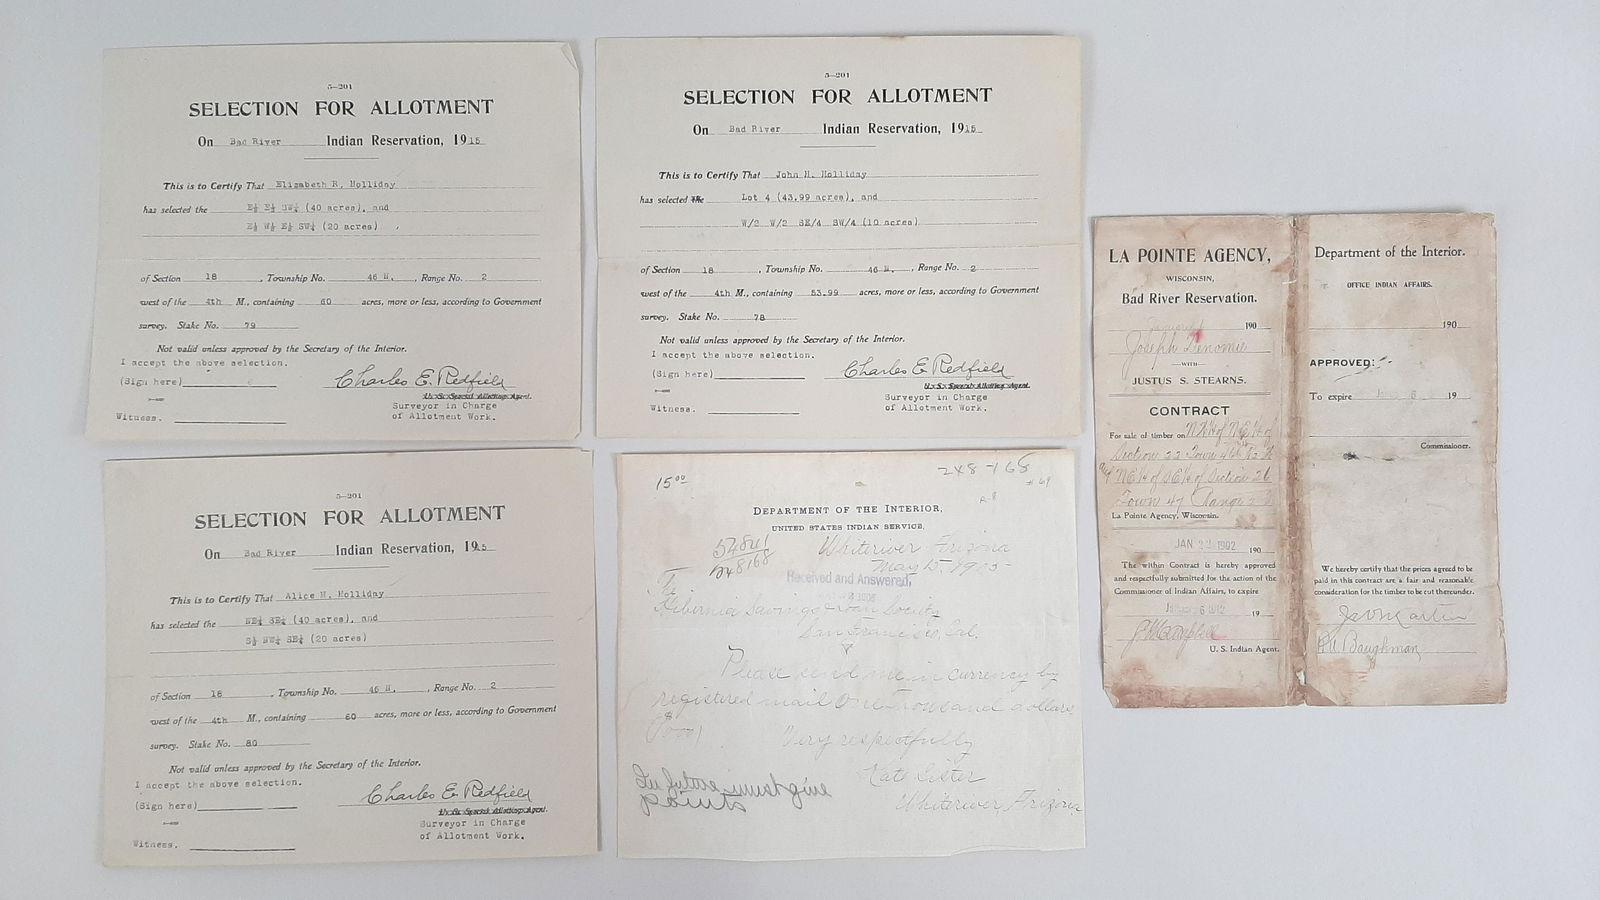 5—201
SELECTION FOR ALLOTMENT
On Bad River Indian Reservation, 1915
This is to Certify That Elizabeth R. Holliday
has selected the E½ E½ SW¼ (40 acres), and
E½ W½ E½ SW¼ (20 acres)
of Section 18, Township No. 46 N., Range No. 2
west of the 4th M., containing 60 acres, more or less, according to Government
survey. Stake No. 79
Not valid unless approved by the Secretary of the Interior.
I accept the above selection.
(Sign here)
Charles E. Redfield
U. S. Special Allotting Agent.
Surveyor in Charge
of Allotment Work.
Witness.
5—201
SELECTION FOR ALLOTMENT
On Bad River Indian Reservation, 1915
This is to Certify That John H. Holliday
has selected the Lot 4 (43.99 acres), and
W/2 W/2 SE/4 SW/4 (10 acres)
of Section 18, Township No. 46 N., Range No. 2
west of the 4th M., containing 53.99 acres, more or less, according to Government
survey. Stake No. 78
Not valid unless approved by the Secretary of the Interior.
I accept the above selection.
(Sign here)
Charles E. Redfield
U. S. Special Allotting Agent.
Surveyor in Charge
of Allotment Work.
Witness.
5—201
SELECTION FOR ALLOTMENT
On Bad River Indian Reservation, 1915
This is to Certify That Alice M. Holliday
has selected the NE¼ SE¼ (40 acres), and
S½ NW¼ SE¼ (20 acres)
of Section 18, Township No. 46 N., Range No. 2
west of the 4th M., containing 60 acres, more or less, according to Government
survey. Stake No. 80
Not valid unless approved by the Secretary of the Interior.
I accept the above selection.
(Sign here)
Charles E. Redfield
U. S. Special Allotting Agent.
Surveyor in Charge
of Allotment Work.
Witness.
248-168
15.00
DEPARTMENT OF THE INTERIOR,
UNITED STATES INDIAN SERVICE,
Whiteriver Arizona
May 15, 1905
248168
Received and Answered,
To
Hibernia Savings & Loan Society
San Francisco, Cal.
Please send me in currency by
registered mail One thousand dollars
Very respectfully
Kate Sister
Whiteriver, Arizona
In future must give
points
LA POINTE AGENCY,
WISCONSIN,
Bad River Reservation.
190
Joseph Denomie
—WITH—
JUSTUS S. STEARNS.
CONTRACT
For sale of timber on N½ of NE¼ of
Section 22 Town 46
NE¼ of SE¼ of Section 26
Town 47 Range 3
La Pointe Agency, Wisconsin.
JAN 1902 190
The within Contract is hereby approved
and respectfully submitted for the action of the
Commissioner of Indian Affairs, to expire
19
S.W. Campbell
U. S. Indian Agent.
Department of the Interior.
OFFICE INDIAN AFFAIRS.
190
APPROVED:
To expire 19
Commissioner.
We hereby certify that the prices agreed to be
paid in this contract are a fair and reasonable
consideration for the timber to be cut thereunder.
Baughman